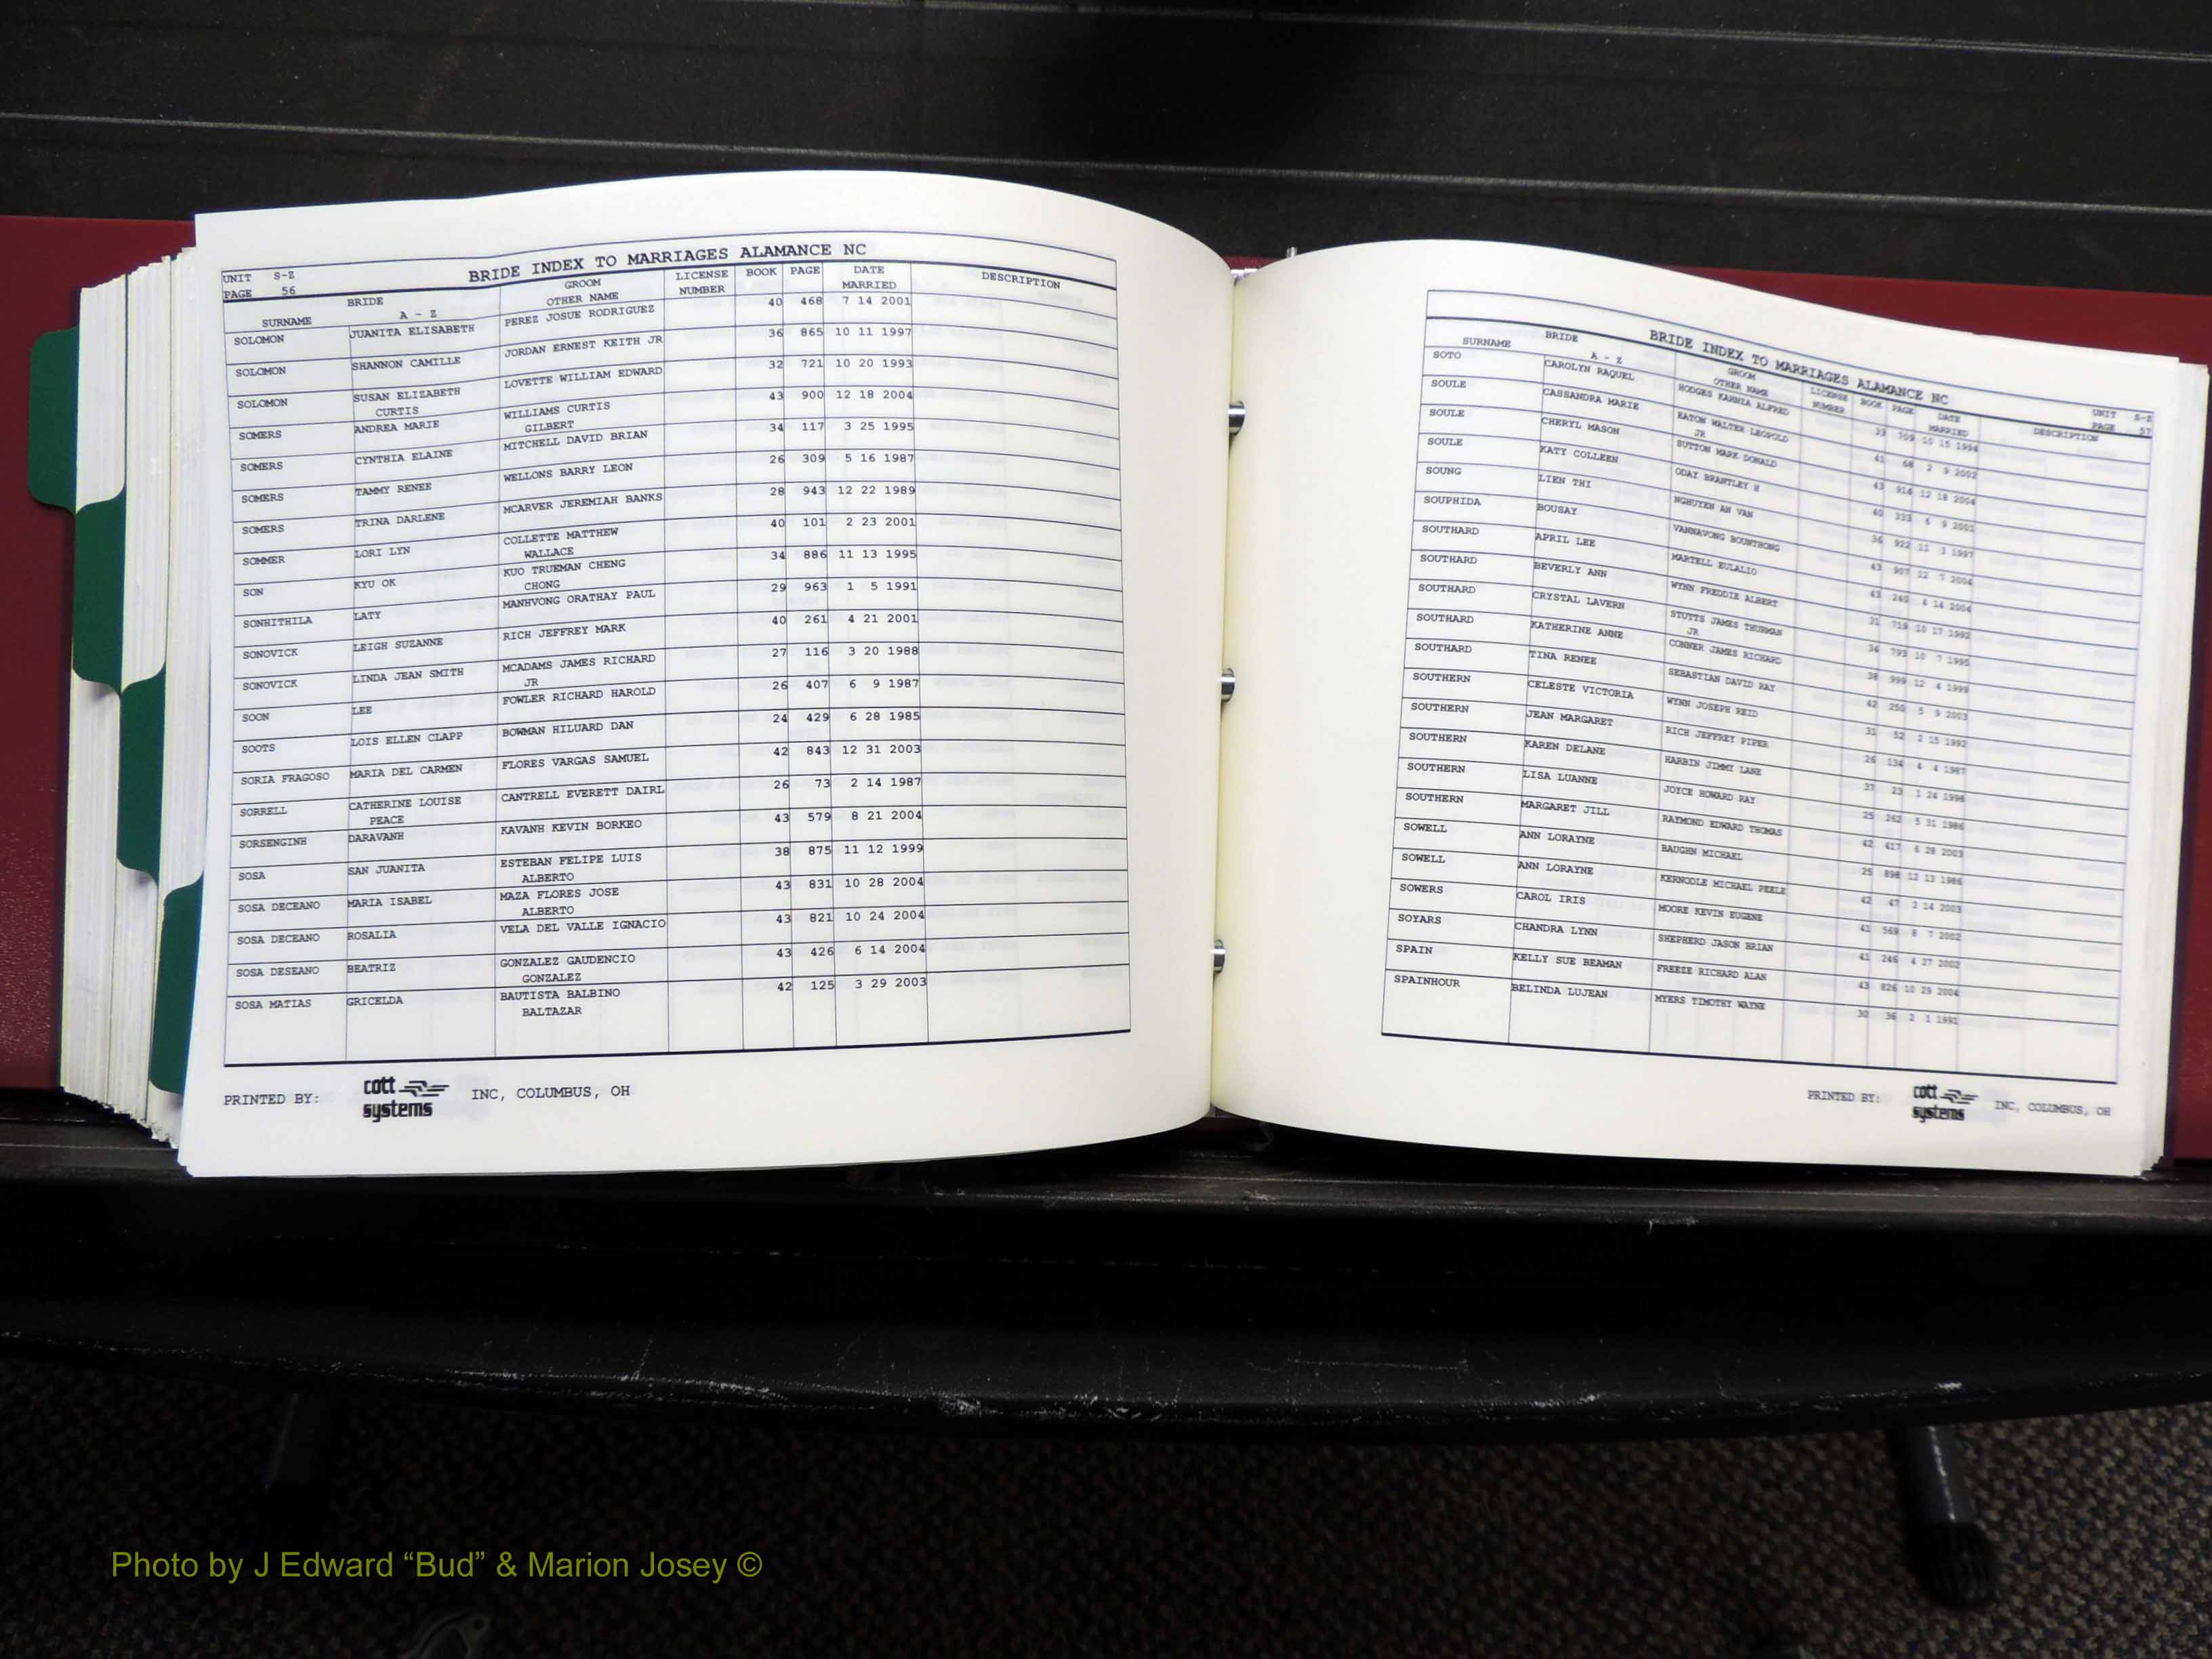 UNIT S-Z
PAGE 56
BRIDE INDEX TO MARRIAGES ALAMANCE NC
BRIDE GROOM LICENSE BOOK PAGE DATE DESCRIPTION
SURNAME A - Z OTHER NAME NUMBER MARRIED
SOLOMON JUANITA ELISABETH PEREZ JOSUE RODRIGUEZ 40 468 7 14 2001
SOLOMON SHANNON CAMILLE JORDAN ERNEST KEITH JR 36 865 10 11 1997
SOLOMON SUSAN ELIZABETH LOVETTE WILLIAM EDWARD 32 721 10 20 1993
CURTIS
SOMERS ANDREA MARIE WILLIAMS CURTIS 43 900 12 18 2004
GILBERT
SOMERS CYNTHIA ELAINE MITCHELL DAVID BRIAN 34 117 3 25 1995
SOMERS TAMMY RENEE WELLONS BARRY LEON 26 309 5 16 1987
SOMERS TRINA DARLENE MCARVER JEREMIAH BANKS 28 943 12 22 1989
SOMMER LORI LYN COLLETTE MATTHEW 40 101 2 23 2001
WALLACE
SON KYU OK KUO TRUEMAN CHENG 34 886 11 13 1995
CHONG
SONHITHILA LATY MANHVONG ORATHAY PAUL 29 963 1 5 1991
SONOVICK LEIGH SUZANNE RICH JEFFREY MARK 40 261 4 21 2001
SONOVICK LINDA JEAN SMITH MCADAMS JAMES RICHARD 27 116 3 20 1988
JR
SOON LEE FOWLER RICHARD HAROLD 26 407 6 9 1987
SOOTS LOIS ELLEN CLAPP BOWMAN HILUARD DAN 24 429 6 28 1985
SORIA FRAGOSO MARIA DEL CARMEN FLORES VARGAS SAMUEL 42 843 12 31 2003
SORRELL CATHERINE LOUISE CANTRELL EVERETT DAIRL 26 73 2 14 1987
PEACE
SORSENGINH DARAVANH KAVANH KEVIN BORKEO 43 579 8 21 2004
SOSA SAN JUANITA ESTEBAN FELIPE LUIS 38 875 11 12 1999
ALBERTO
SOSA DECEANO MARIA ISABEL MAZA FLORES JOSE 43 831 10 28 2004
ALBERTO
SOSA DECEANO ROSALIA VELA DEL VALLE IGNACIO 43 821 10 24 2004
SOSA DESEANO BEATRIZ GONZALEZ GAUDENCIO 43 426 6 14 2004
GONZALEZ
SOSA MATIAS GRICELDA BAUTISTA BALBINO 42 125 3 29 2003
BALTAZAR
PRINTED BY: cott systems INC, COLUMBUS, OH
BRIDE INDEX TO MARRIAGES ALAMANCE NC
UNIT S-Z
PAGE 57
BRIDE GROOM LICENSE BOOK PAGE DATE DESCRIPTION
SURNAME A - Z OTHER NAME NUMBER MARRIED
SOTO CAROLYN RAQUEL HODGES KARNIA ALFRED 33 709 10 15 1994
SOULE CASSANDRA MARIE EATON WALTER LEOPOLD 41 68 2 9 2002
JR
SOULE CHERYL MASON SUTTON MARK DONALD 43 914 12 18 2004
SOULE KATY COLLEEN ODAY BRANTLEY H 40 333 6 9 2001
SOUNG LIEN THI NGHUYEN AN VAN 36 922 11 3 1997
SOUPHIDA BOUSAY VANNAVONG BOUNTHONG 43 907 12 7 2004
SOUTHARD APRIL LEE MARTELL EULALIO 43 240 4 14 2004
SOUTHARD BEVERLY ANN WYNN FREDDIE ALBERT 31 718 10 17 1992
SOUTHARD CRYSTAL LAVERN STUTTS JAMES THURMAN 34 793 10 7 1995
JR
SOUTHARD KATHERINE ANNE CONNER JAMES RICHARD 38 999 12 4 1999
SOUTHARD TINA RENEE SEBASTIAN DAVID RAY 42 250 5 9 2003
SOUTHERN CELESTE VICTORIA WYNN JOSEPH REID 31 52 2 15 1992
SOUTHERN JEAN MARGARET RICH JEFFREY PIPER 26 134 4 4 1987
SOUTHERN KAREN DELANE HARBIN JIMMY LANE 37 23 1 24 1998
SOUTHERN LISA LUANNE JOYCE HOWARD RAY 25 262 5 31 1986
SOUTHERN MARGARET JILL RAYMOND EDWARD THOMAS 42 417 6 28 2003
SOWELL ANN LORAYNE BAUGHN MICHAEL 25 898 12 13 1986
SOWELL ANN LORAYNE KERNODLE MICHAEL PEELE 42 47 2 14 2003
SOWERS CAROL IRIS MOORE KEVIN EUGENE 41 569 8 7 2002
SOYARS CHANDRA LYNN SHEPHERD JASON BRIAN 41 246 4 27 2002
SPAIN KELLY SUE BEAMAN FREEZE RICHARD ALAN 43 826 10 29 2004
SPAINHOUR BELINDA LUJEAN MYERS TIMOTHY WAYNE 30 36 2 1 1991
PRINTED BY: cott systems INC, COLUMBUS, OH
Photo by J Edward “Bud” & Marion Josey ©